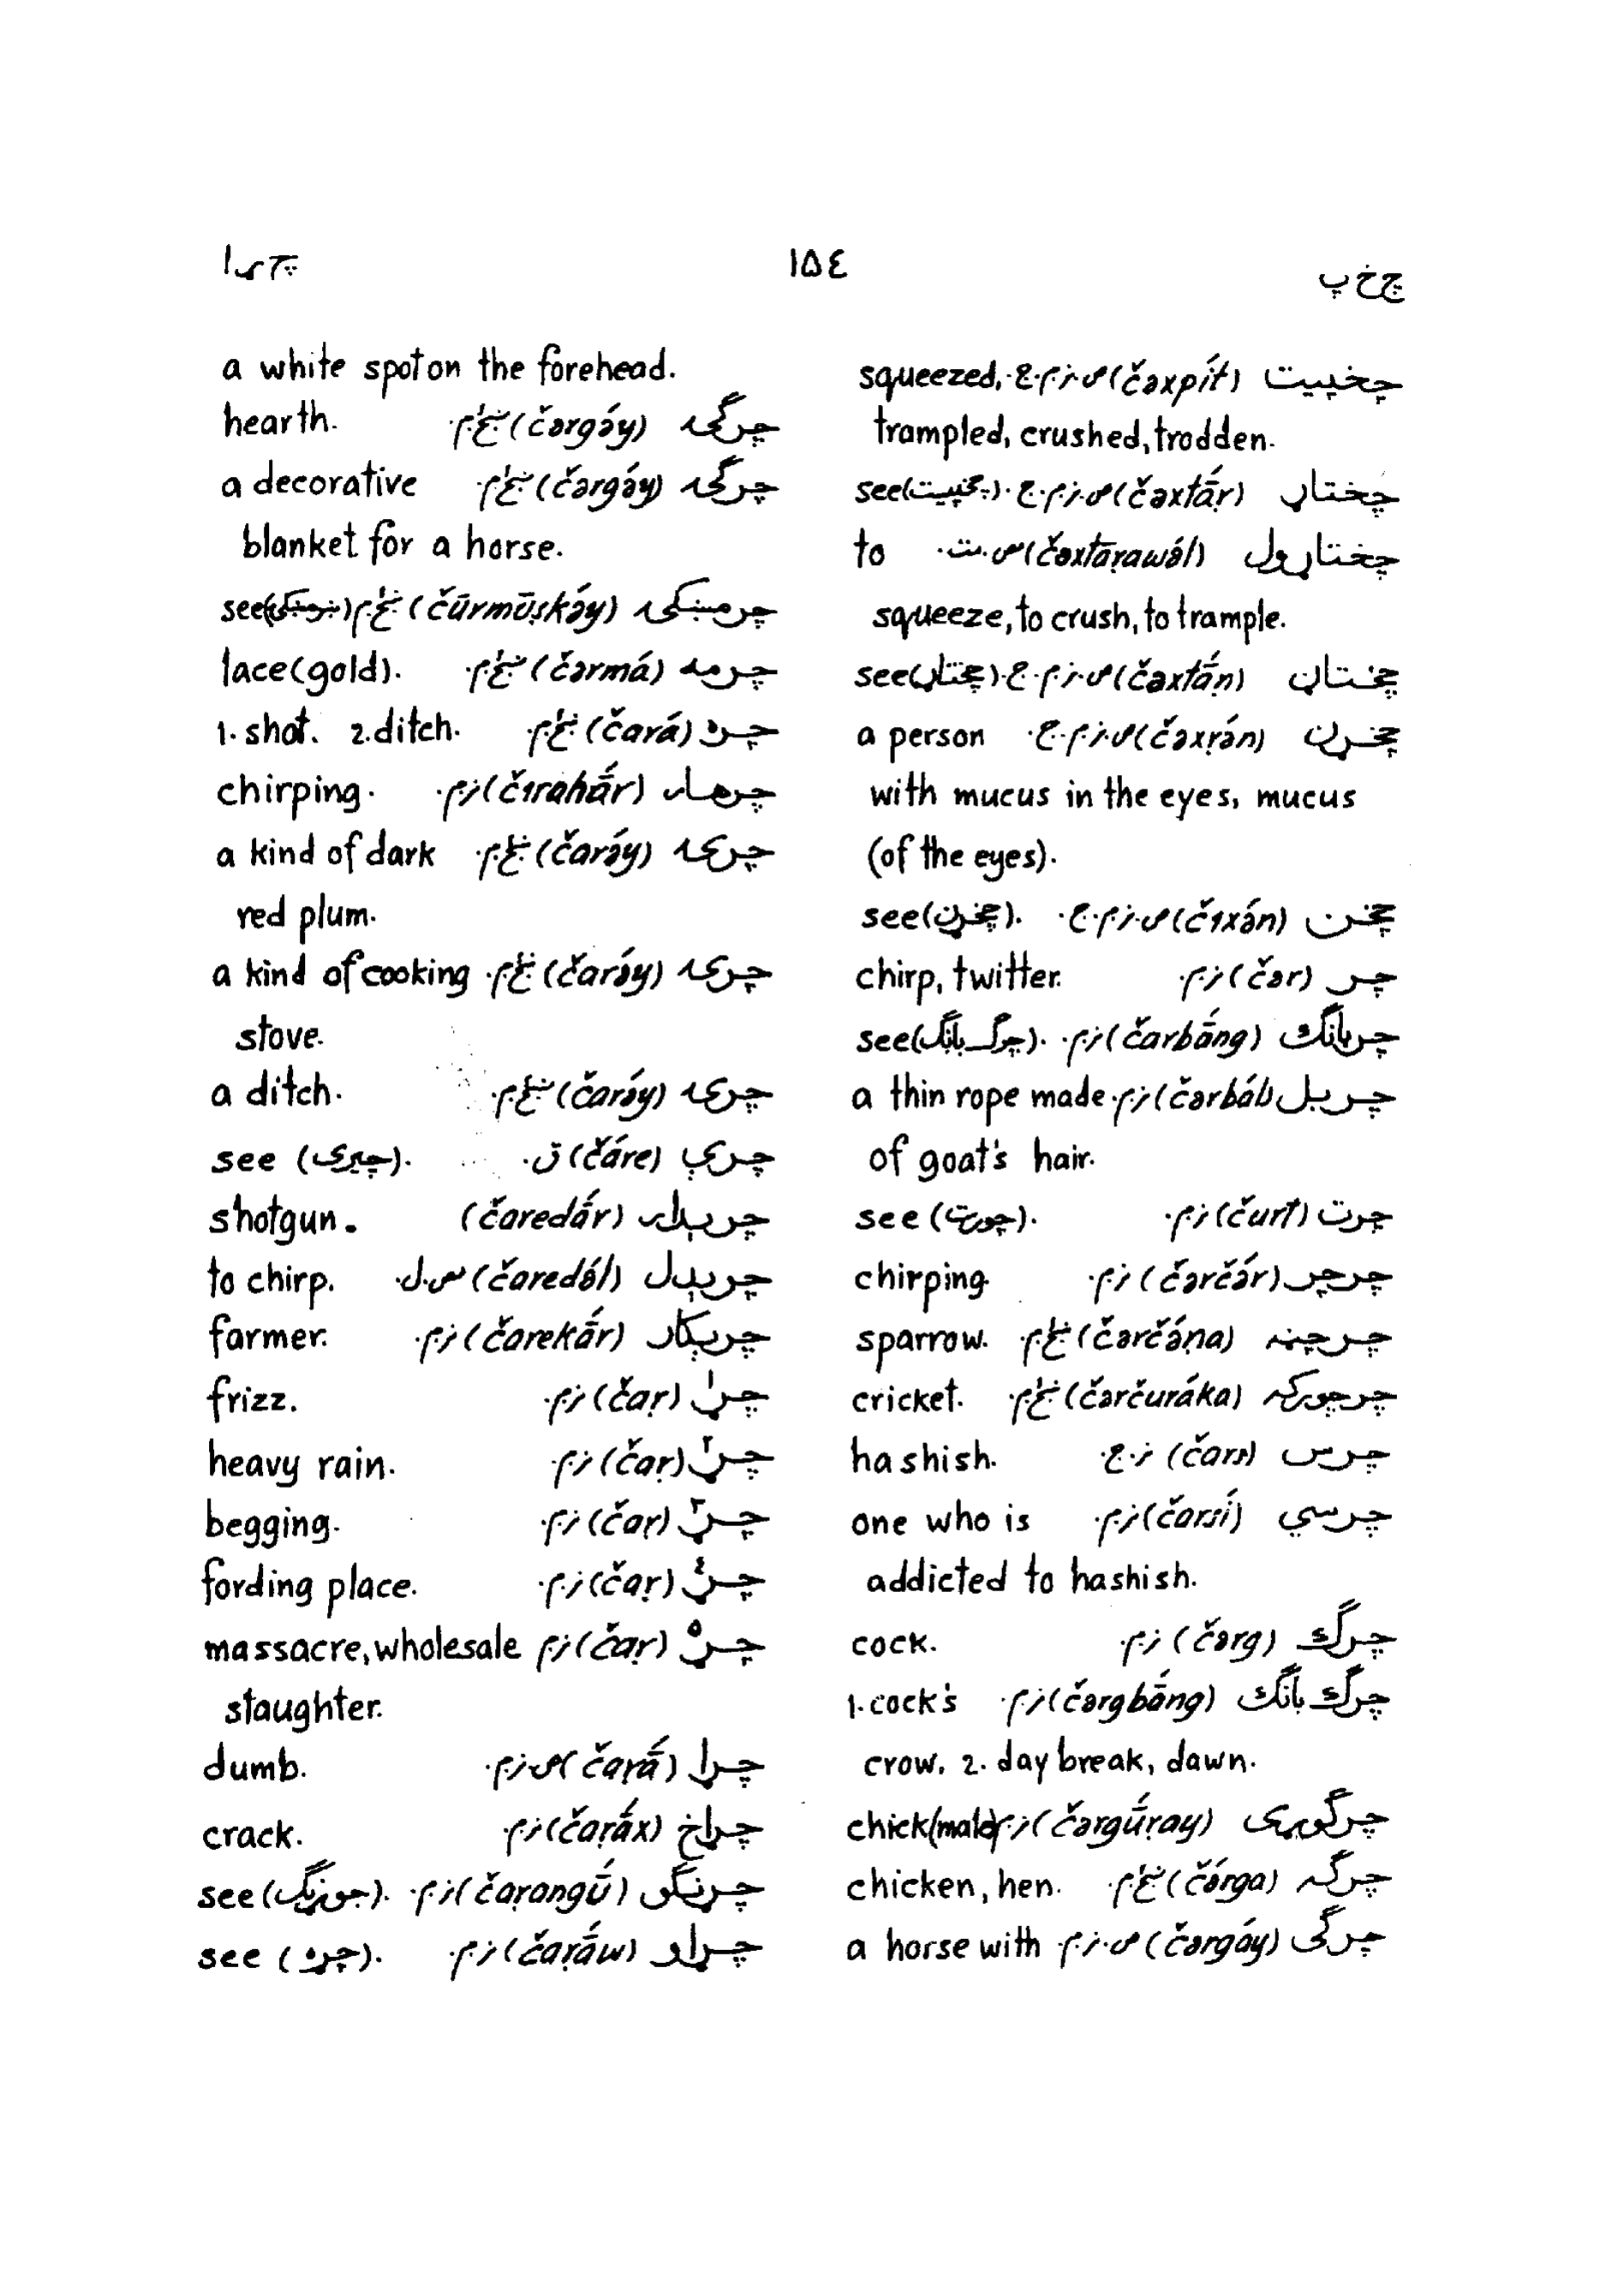 چ خ پ ۱۵٤ چ ړ ا
چخپيت (čəxpít) ص.نر.م.ج. squeezed,
trampled, crushed, trodden.
چختاړ (čəxtā́ṛ) ص.نر.م.ج. see(چخپيت).
چختاړول (čəxtāṛawə́l) ص.مت. to
squeeze, to crush, to trample.
چختاڼ (čəxtā́ṇ) ص.نر.م.ج. see(چختاړ).
چخړن (čəxṛán) ص.نر.م.ج. a person
with mucus in the eyes, mucus
(of the eyes).
چخن (čıxə́n) ص.نر.م.ج. see(چخړن).
چر (čər) نر.م. chirp, twitter.
چربانګ (čarbā́ng) نر.م. see(چرګ بانګ).
چربل (čərbə́l) نر.م. a thin rope made
of goat's hair.
چرت (čurt) نر.م. see (چورت).
چرچر (čərčə́r) نر.م. chirping.
چرچڼه (čərčə́ṇa) ښځ.م. sparrow.
چرچورکه (čərčuráka) ښځ.م. cricket.
چرس (čars) نر.ج. hashish.
چرسي (čarsí) نر.م. one who is
addicted to hashish.
چرګ (čərg) نر.م. cock.
چرګ بانګ (čərgbā́ng) نر.م. 1. cock's
crow. 2. day break, dawn.
چرګوړی (čərgū́ṛay) نر.م. chick(male)
چرګه (čə́rga) ښځ.م. chicken, hen.
چرګی (čərgáy) ص.نر.م. a horse with
a white spot on the forehead.
چرګۍ (čərgə́y) ښځ.م. hearth.
چرګۍ (čərgə́y) ښځ.م. a decorative
blanket for a horse.
چرمښکۍ (čūrmūṣkə́y) ښځ.م. see
چرمه (čərmá) ښځ.م. lace (gold).
چره (čará) ښځ.م. 1. shot. 2. ditch.
چرهار (čırahā́r) نر.م. chirping.
چرۍ (čarə́y) ښځ.م. a kind of dark
red plum.
چرۍ (čarə́y) ښځ.م. a kind of cooking
stove.
چرۍ (čarə́y) ښځ.م. a ditch.
چرې (čáre) ق. see (چيرې).
چرېدار (čaredā́r) shotgun.
چرېدل (čaredə́l) مص.ل. to chirp.
چرېکار (čarekā́r) نر.م. farmer.
چړ۱ (čaṛ) نر.م. frizz.
چړ۲ (čaṛ) نر.م. heavy rain.
چړ۳ (čaṛ) نر.م. begging.
چړ٤ (čaṛ) نر.م. fording place.
چړ۵ (čaṛ) نر.م. massacre, wholesale
slaughter.
چړا (čaṛā́) ص.نر.م. dumb.
چړاخ (čaṛā́x) نر.م. crack.
چړنګو (čaṛangū́) نر.م. see (جوړنګ).
چړاو (čaṛā́w) نر.م. see (چړه).